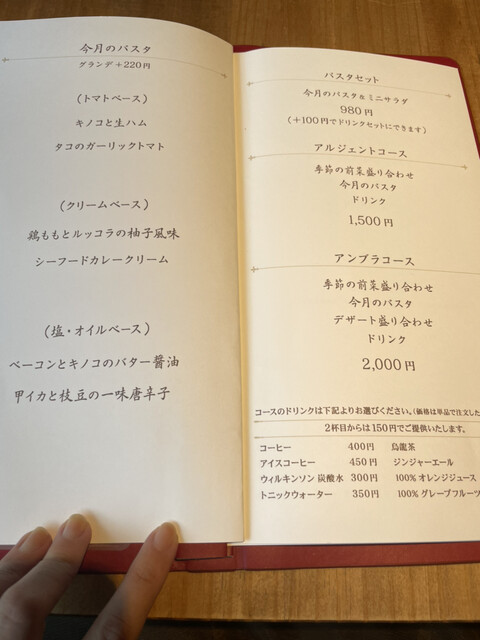 今月のパスタ
グランデ+220円
(トマトベース)
キノコと生ハム
タコのガーリックトマト
(クリームベース)
鶏ももとルッコラの柚子風味
シーフードカレークリーム
(塩・オイルベース)
ベーコンとキノコのバター醤油
甲イカと枝豆の一味唐辛子
パスタセット
今月のパスタ&ミニサラダ
980円
(+100円でドリンクセットにできます)
アルジェントコース
季節の前菜盛り合わせ
今月のパスタ
ドリンク
1,500円
アンブラコース
季節の前菜盛り合わせ
今月のパスタ
デザート盛り合わせ
ドリンク
2,000円
コースのドリンクは下記よりお選びください。(価格は単品で注文した
2杯目からは150円でご提供いたします。
コーヒー 400円 烏龍茶
アイスコーヒー 450円 ジンジャーエール
ウィルキンソン 炭酸水 300円 100%オレンジジュース
トニックウォーター 350円 100%グレープフルーツ